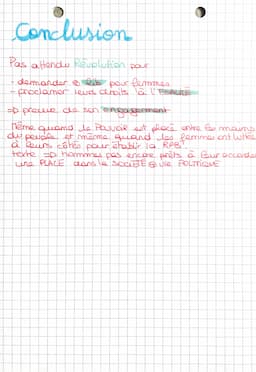 Conclusion
Pas attendu Révolution pour
- demander pour femmes
- proclamer leurs droits à l'
=> preuve de son engagement
Même quand le Pouvoir est placé entre les mains
du peuple, et même quand les femmes ont lutté
à leurs côtés pour établir la RPB
texte => hommes pas encore prêts à leur accorder
une PLACE dans la SOCIÉTÉ VIE POLITIQUE